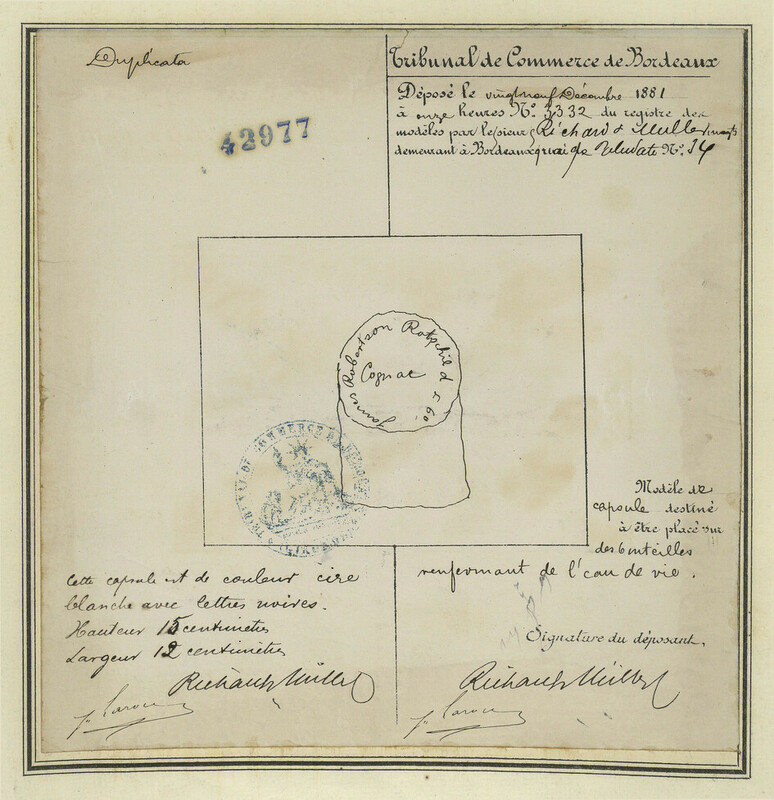 Duplicata
42977
Tribunal de Commerce de Bordeaux
Déposé le vingt neuf Décembre 1881
à onze heures No. 3332 du registre des
modèles par le sieurs Richard & Muller
demeurant à Bordeaux quai de No. 34
James Robertson Rotschild & Co.
Cognac
TRIBUNAL DE COMMERCE DE BORDEAUX
Modèle de
capsule destiné
à être placé sur
des bouteilles
renfermant de l'eau de vie.
Cette capsule est de couleur cire
blanche avec lettres noires.
Hauteur 15 centimètres
Largeur 12 centimètres
Signature du déposant,
Richard & Müller
Richard & Müller